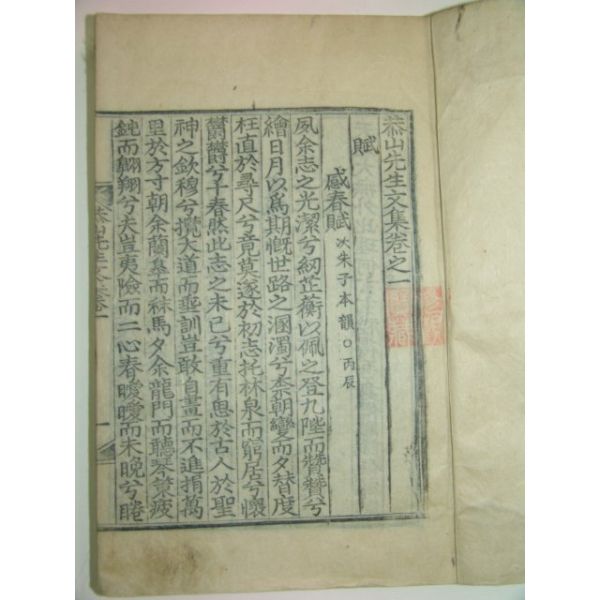 恭山先生文集卷之一
賦
感春賦 次朱子本韻○丙辰
夙余志之光潔兮紉芷蘅以佩之登九陛而贊贊兮
繪日月以爲期慨世路之溷濁兮柰朝變而夕替度
枉直於尋尺兮竟莫遂於初志托林泉而窮居兮懷
鬱鬱兮予春然此志之未已兮重有思於古人於聖
神之欽穆兮攬大道而聖訓豈敢自畫而不進捐萬
里於方寸朝余蘭皋而秣馬夕余龍門而聽琴策疲
鈍而翺翔兮夫豈夷險而二心春曖曖而未晩兮睠
恭山先生文集卷一